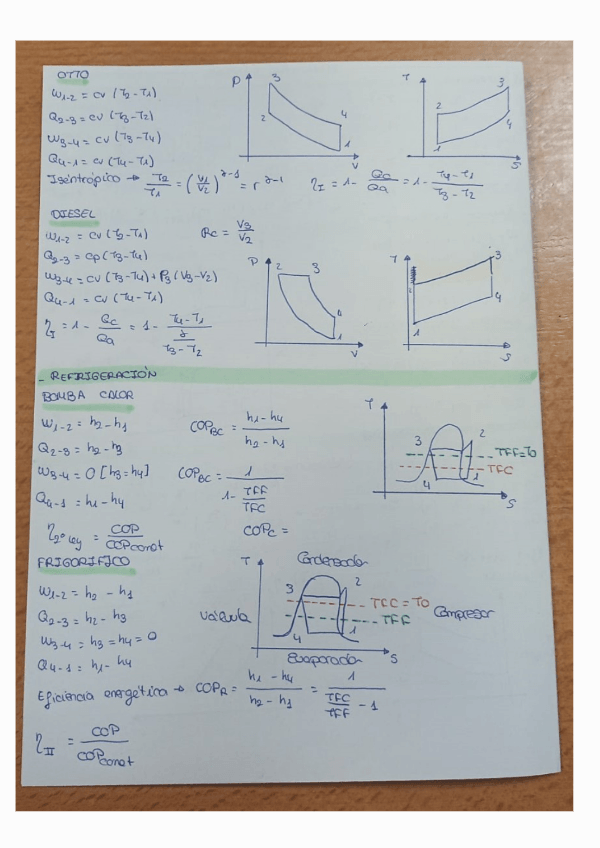 OTTO
W1-2 = cv (T2-T1)
Q2-3 = cv (T3-T2)
W3-4 = cv (T3-T4)
Q4-1 = cv (T4-T1)
Isentrópico → T2/T1 = (V1/V2)^γ-1 = r^γ-1
ηI = 1 - Qc/Qa = 1 - T4-T1/T3-T2
P 3 2 4 1 V
T 3 2 4 1 S
DIESEL
W1-2 = cv (T2-T1)
Rc = V3/V2
Q2-3 = cp (T3-T4)
W3-4 = cv (T3-T4) + P3 (V3-V2)
Q4-1 = cv (T4-T1)
ηI = 1 - Qc/Qa = 1 - T4-T1/γ/T3-T2
P 2 3 4 1 V
T 3 4 1 S
- REFRIGERACIÓN
BOMBA CALOR
W1-2 = h2-h1
Q2-3 = h2-h3
W3-4 = 0 [h3=h4]
Q4-1 = h1-h4
η2º ley = COP/COPcarnot
COPBC = h1-h4/h2-h1
COPBC = 1/1 - TFF/TFC
COPC =
T 3 2 4 1 S
TFF=T0
TFC
FRIGORIFICO
W1-2 = h2 - h1
Q2-3 = h2 - h3
W3-4 = h3 = h4 = 0
Q4-1 = h1 - h4
Condensador
T 3 2 4 1 S
TFC = T0
TFF
Válvula
Compresor
Evaporador
Eficiencia energética → COPR = h1 - h4/h2 - h1 = 1/TFC/TFF - 1
ηII = COP/COPcarnot